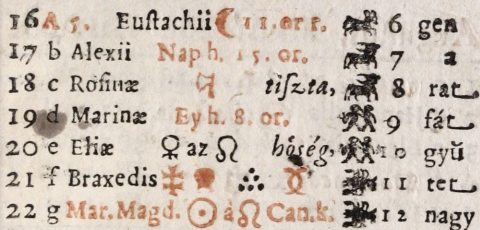 16 A 5. Euſtachii ☾ 11. or r. 6 gen
17 b Alexii Nap h. 15. or. 7 a
18 c Roſinæ tiſzta, 8 rat
19 d Marinæ Ey h. 8. or. 9 fát
20 e Eliæ ♀ az ♌ hőség, 10 gyŭ
21 f Braxedis 11 tet
22 g Mar. Magd. ☉ à ♌ Can. k. 12 nagy